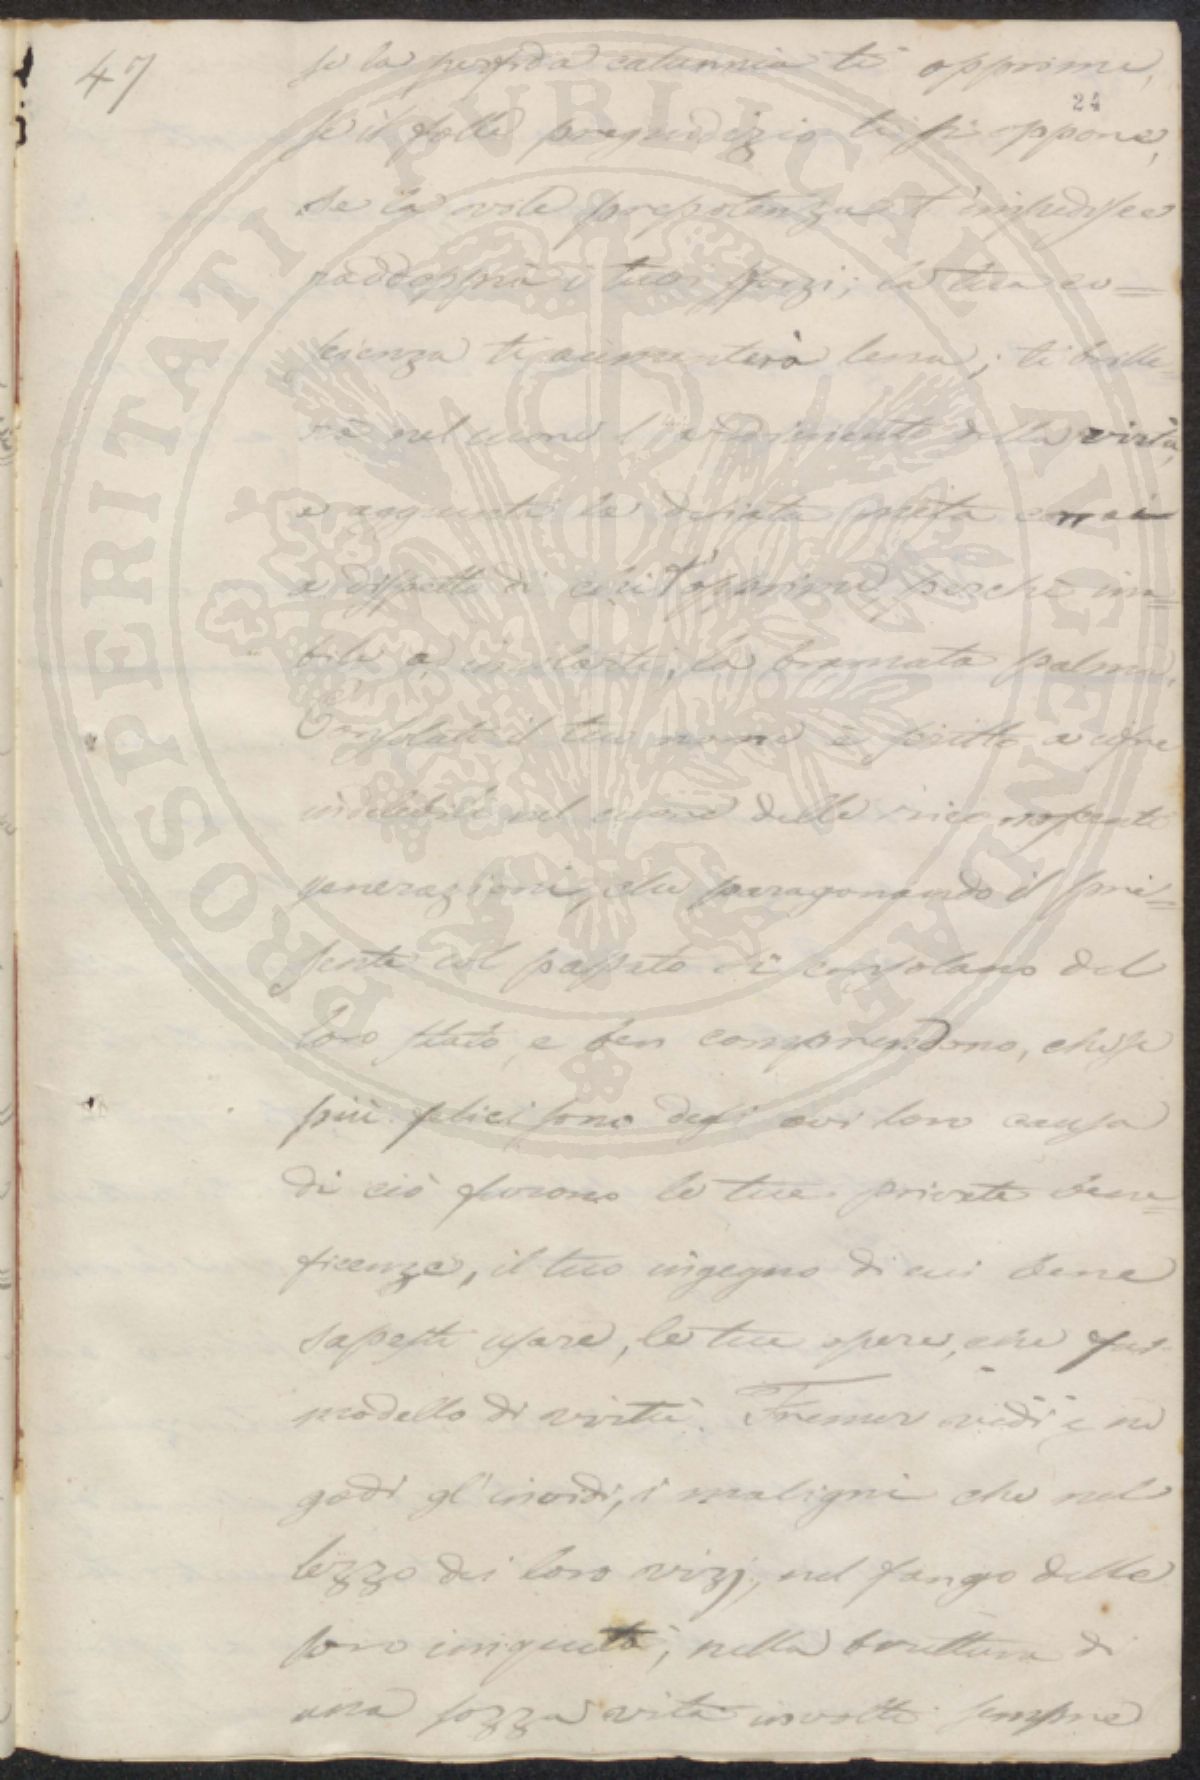 47
se la perfida calunnia ti opprime,
24
se il folle pregiudizio ti si oppone,
se la vile prepotenza t'impedisce
raddoppia i tuoi sforzi; la tua co=
scienza ti aumenterà lena; ti brille=
rà nel cuore l'ardimento della virtù,
e aggiunta la desiata meta corrai
a dispetto di chi t'opprime perchè ina=
bile a imitarti, la bramata palma.
Consolati il tuo nome è scritto a cifre
indelebili nel cuore delle riconoscenti
generazioni, che paragonando il pre=
sente col passato si consolano del
loro stato, e ben comprendono, che se
più felici sono degli avi loro causa
di ciò furono le tue private bene=
ficenze, il tuo ingegno di cui bene
sapesti usare, le tue opere, che fur
modello di virtù. Fremer vedi e ne
godi gl'invidi, i maligni che nel
lezzo dei loro vizj, nel fango delle
loro iniquità, nella bruttura di
una sozza vita involti sempre
PROSPERITATI PUBLICAE AUGENDAE